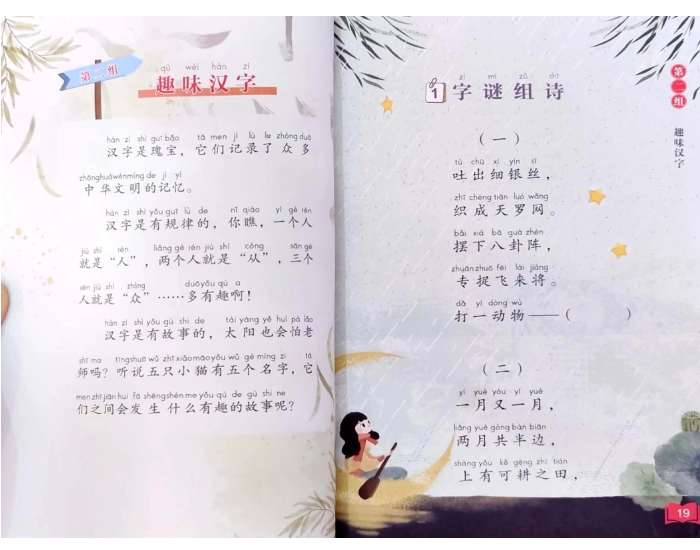 第二组
qù wèi hàn zì
趣味汉字
hàn zì shì guī bǎo tā men jì lù le zhòng duō
汉字是瑰宝，它们记录了众多
zhōng huá wén míng de jì yì
中华文明的记忆。
hàn zì shì yǒu guī lǜ de nǐ qiáo yí gè rén
汉字是有规律的，你瞧，一个人
jiù shì rén liǎng gè rén jiù shì cóng sān gè
就是“人”，两个人就是“从”，三个
rén jiù shì zhòng duō yǒu qù a
人就是“众”……多有趣啊！
hàn zì shì yǒu gù shi de tài yáng yě huì pà lǎo
汉字是有故事的，太阳也会怕老
shī ma tīng shuō wǔ zhī xiǎo māo yǒu wǔ gè míng zi tā
师吗？听说五只小猫有五个名字，它
men zhī jiān huì fā shēng shén me yǒu qù de gù shi ne
们之间会发生什么有趣的故事呢？
zì mí zǔ shī
1 字谜组诗
（一）
tǔ chū xì yín sī
吐出细银丝，
zhī chéng tiān luó wǎng
织成天罗网。
bǎi xià bā guà zhèn
摆下八卦阵，
zhuān zhuō fēi lái jiàng
专捉飞来将。
dǎ yí dòng wù
打一动物——（ ）
（二）
yí yuè yòu yí yuè
一月又一月，
liǎng yuè gòng bàn biān
两月共半边，
shàng yǒu kě gēng zhī tián
上有可耕之田，
第二组
趣味汉字
19